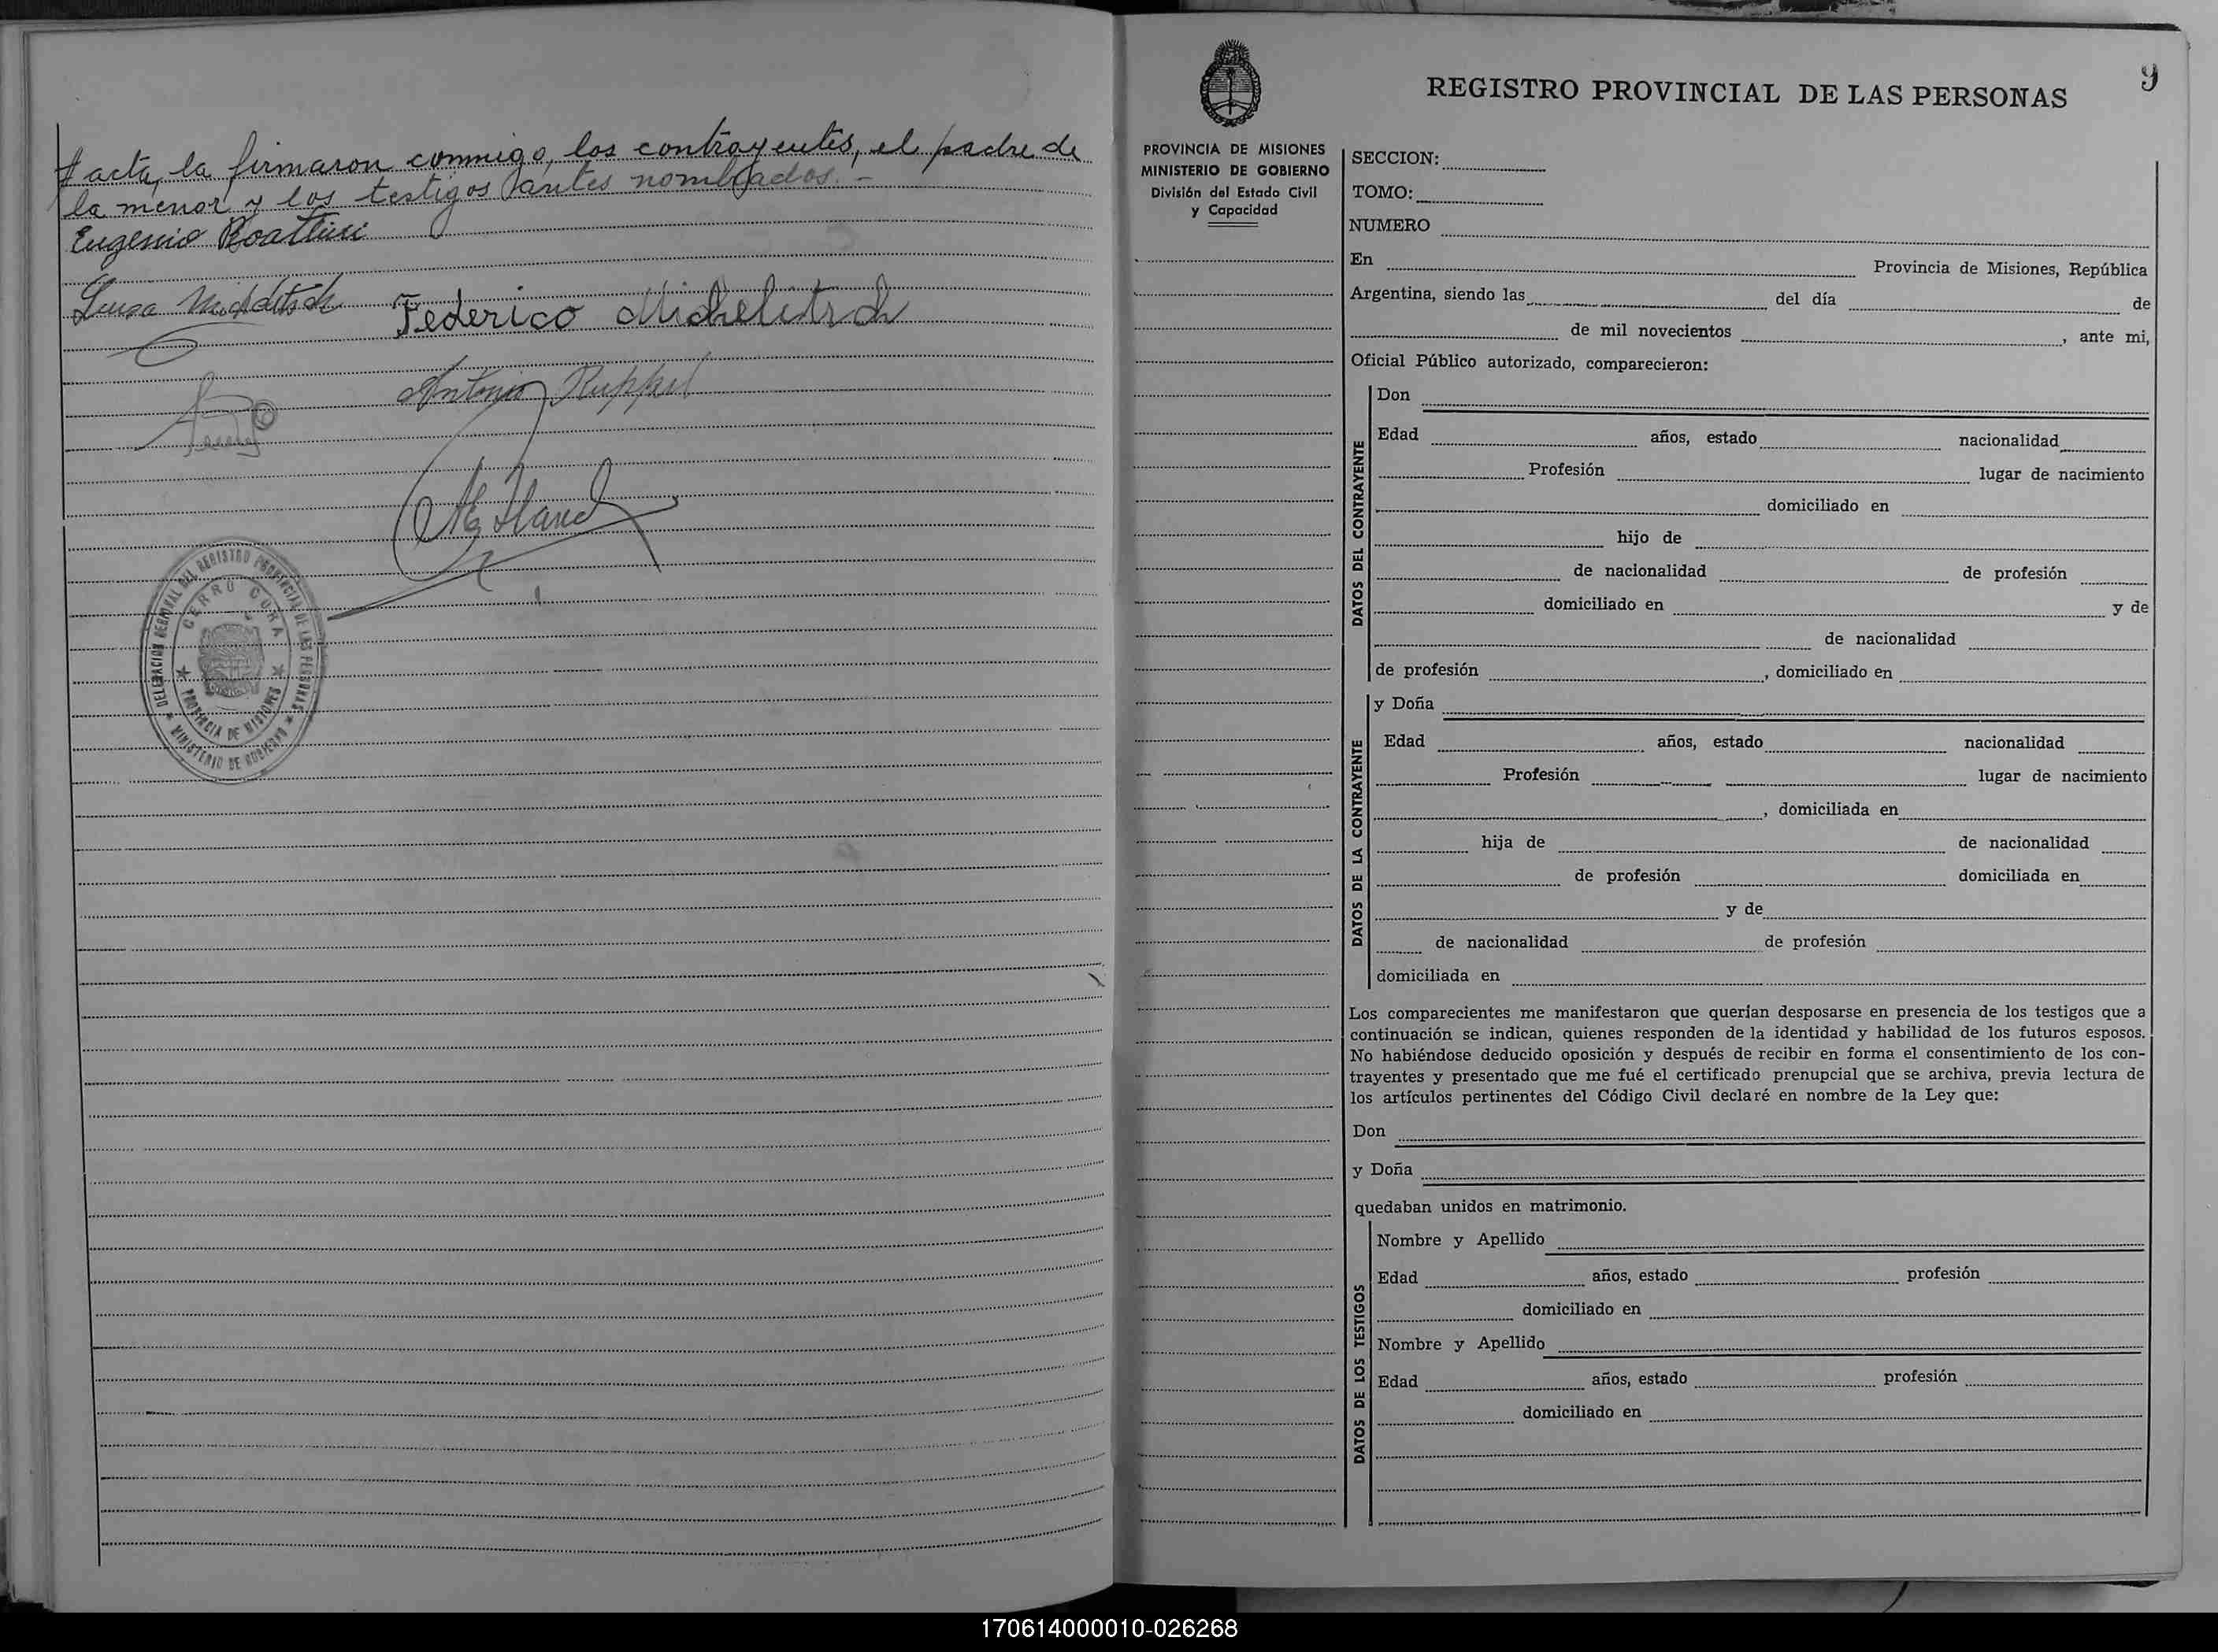 acta, la firmaron conmigo, los contrayentes, el padre de
la menor y los testigos antes nombrados. -
Eugenio
Luisa
Federico Michelitsch
Antonio Ruppel
DELEGACION REGIONAL DEL REGISTRO PROVINCIAL DE LAS PERSONAS
CERRO CORA
PROVINCIA DE MISIONES
MINISTERIO DE GOBIERNO
9
REGISTRO PROVINCIAL DE LAS PERSONAS
PROVINCIA DE MISIONES
MINISTERIO DE GOBIERNO
División del Estado Civil
y Capacidad
SECCION:
TOMO:
NUMERO
En Provincia de Misiones, República
Argentina, siendo las del día de
de mil novecientos , ante mi,
Oficial Público autorizado, comparecieron:
DATOS DEL CONTRAYENTE
Don
Edad años, estado nacionalidad
Profesión lugar de nacimiento
domiciliado en
hijo de
de nacionalidad de profesión
domiciliado en y de
de nacionalidad
de profesión , domiciliado en
DATOS DE LA CONTRAYENTE
y Doña
Edad años, estado nacionalidad
Profesión lugar de nacimiento
, domiciliada en
hija de de nacionalidad
de profesión domiciliada en
y de
de nacionalidad de profesión
domiciliada en
Los comparecientes me manifestaron que querían desposarse en presencia de los testigos que a
continuación se indican, quienes responden de la identidad y habilidad de los futuros esposos.
No habiéndose deducido oposición y después de recibir en forma el consentimiento de los con-
trayentes y presentado que me fué el certificado prenupcial que se archiva, previa lectura de
los artículos pertinentes del Código Civil declaré en nombre de la Ley que:
Don
y Doña
quedaban unidos en matrimonio.
DATOS DE LOS TESTIGOS
Nombre y Apellido
Edad años, estado profesión
domiciliado en
Nombre y Apellido
Edad años, estado profesión
domiciliado en
170614000010-026268